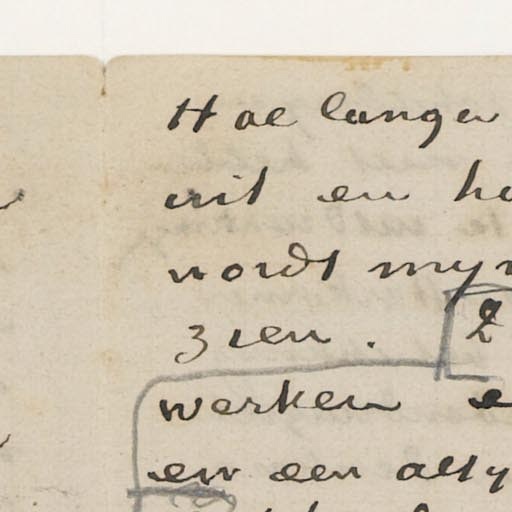 Hoe langer
uit en ho
wordt myn
zien.
werken e
en een alty